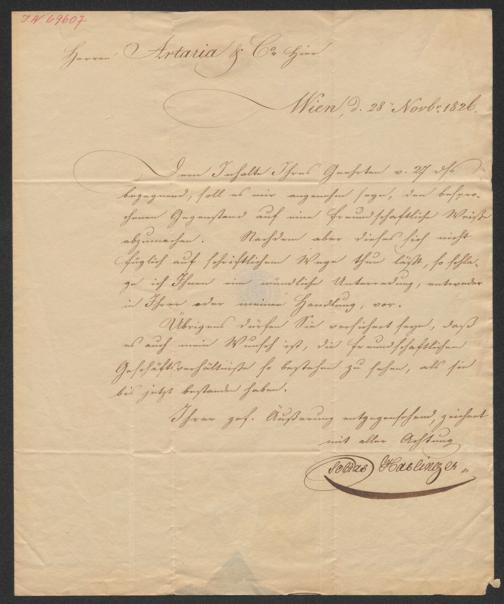 I.N 69607
Herren Artaria & Co. Hier
Wien, d. 28t Novbr. 1826.
Dem Inhalte Ihres Geehrten v. 27 dſs
begegnend, soll es mir angenehm seyn, den bespro-
chenen Gegenstand auf eine freundschaftliche Weise
abzumachen. Nachdem aber dieses sich nicht
füglich auf schriftlichem Wege thun läßt, so schla-
ge ich Ihnen eine mündliche Unterredung, entweder
in Ihrer oder meiner Handlung, vor.
Übrigens dürfen Sie versichert seyn, daß
es auch mein Wunsch ist, die freundschaftlichen
Geschäftsverhältnisse so bestehen zu sehen, als sie
bis jetzt bestanden haben.
Ihrer gef. Äußerung entgegensehend, zeichnet
mit aller Achtung
Tobias Haslinger